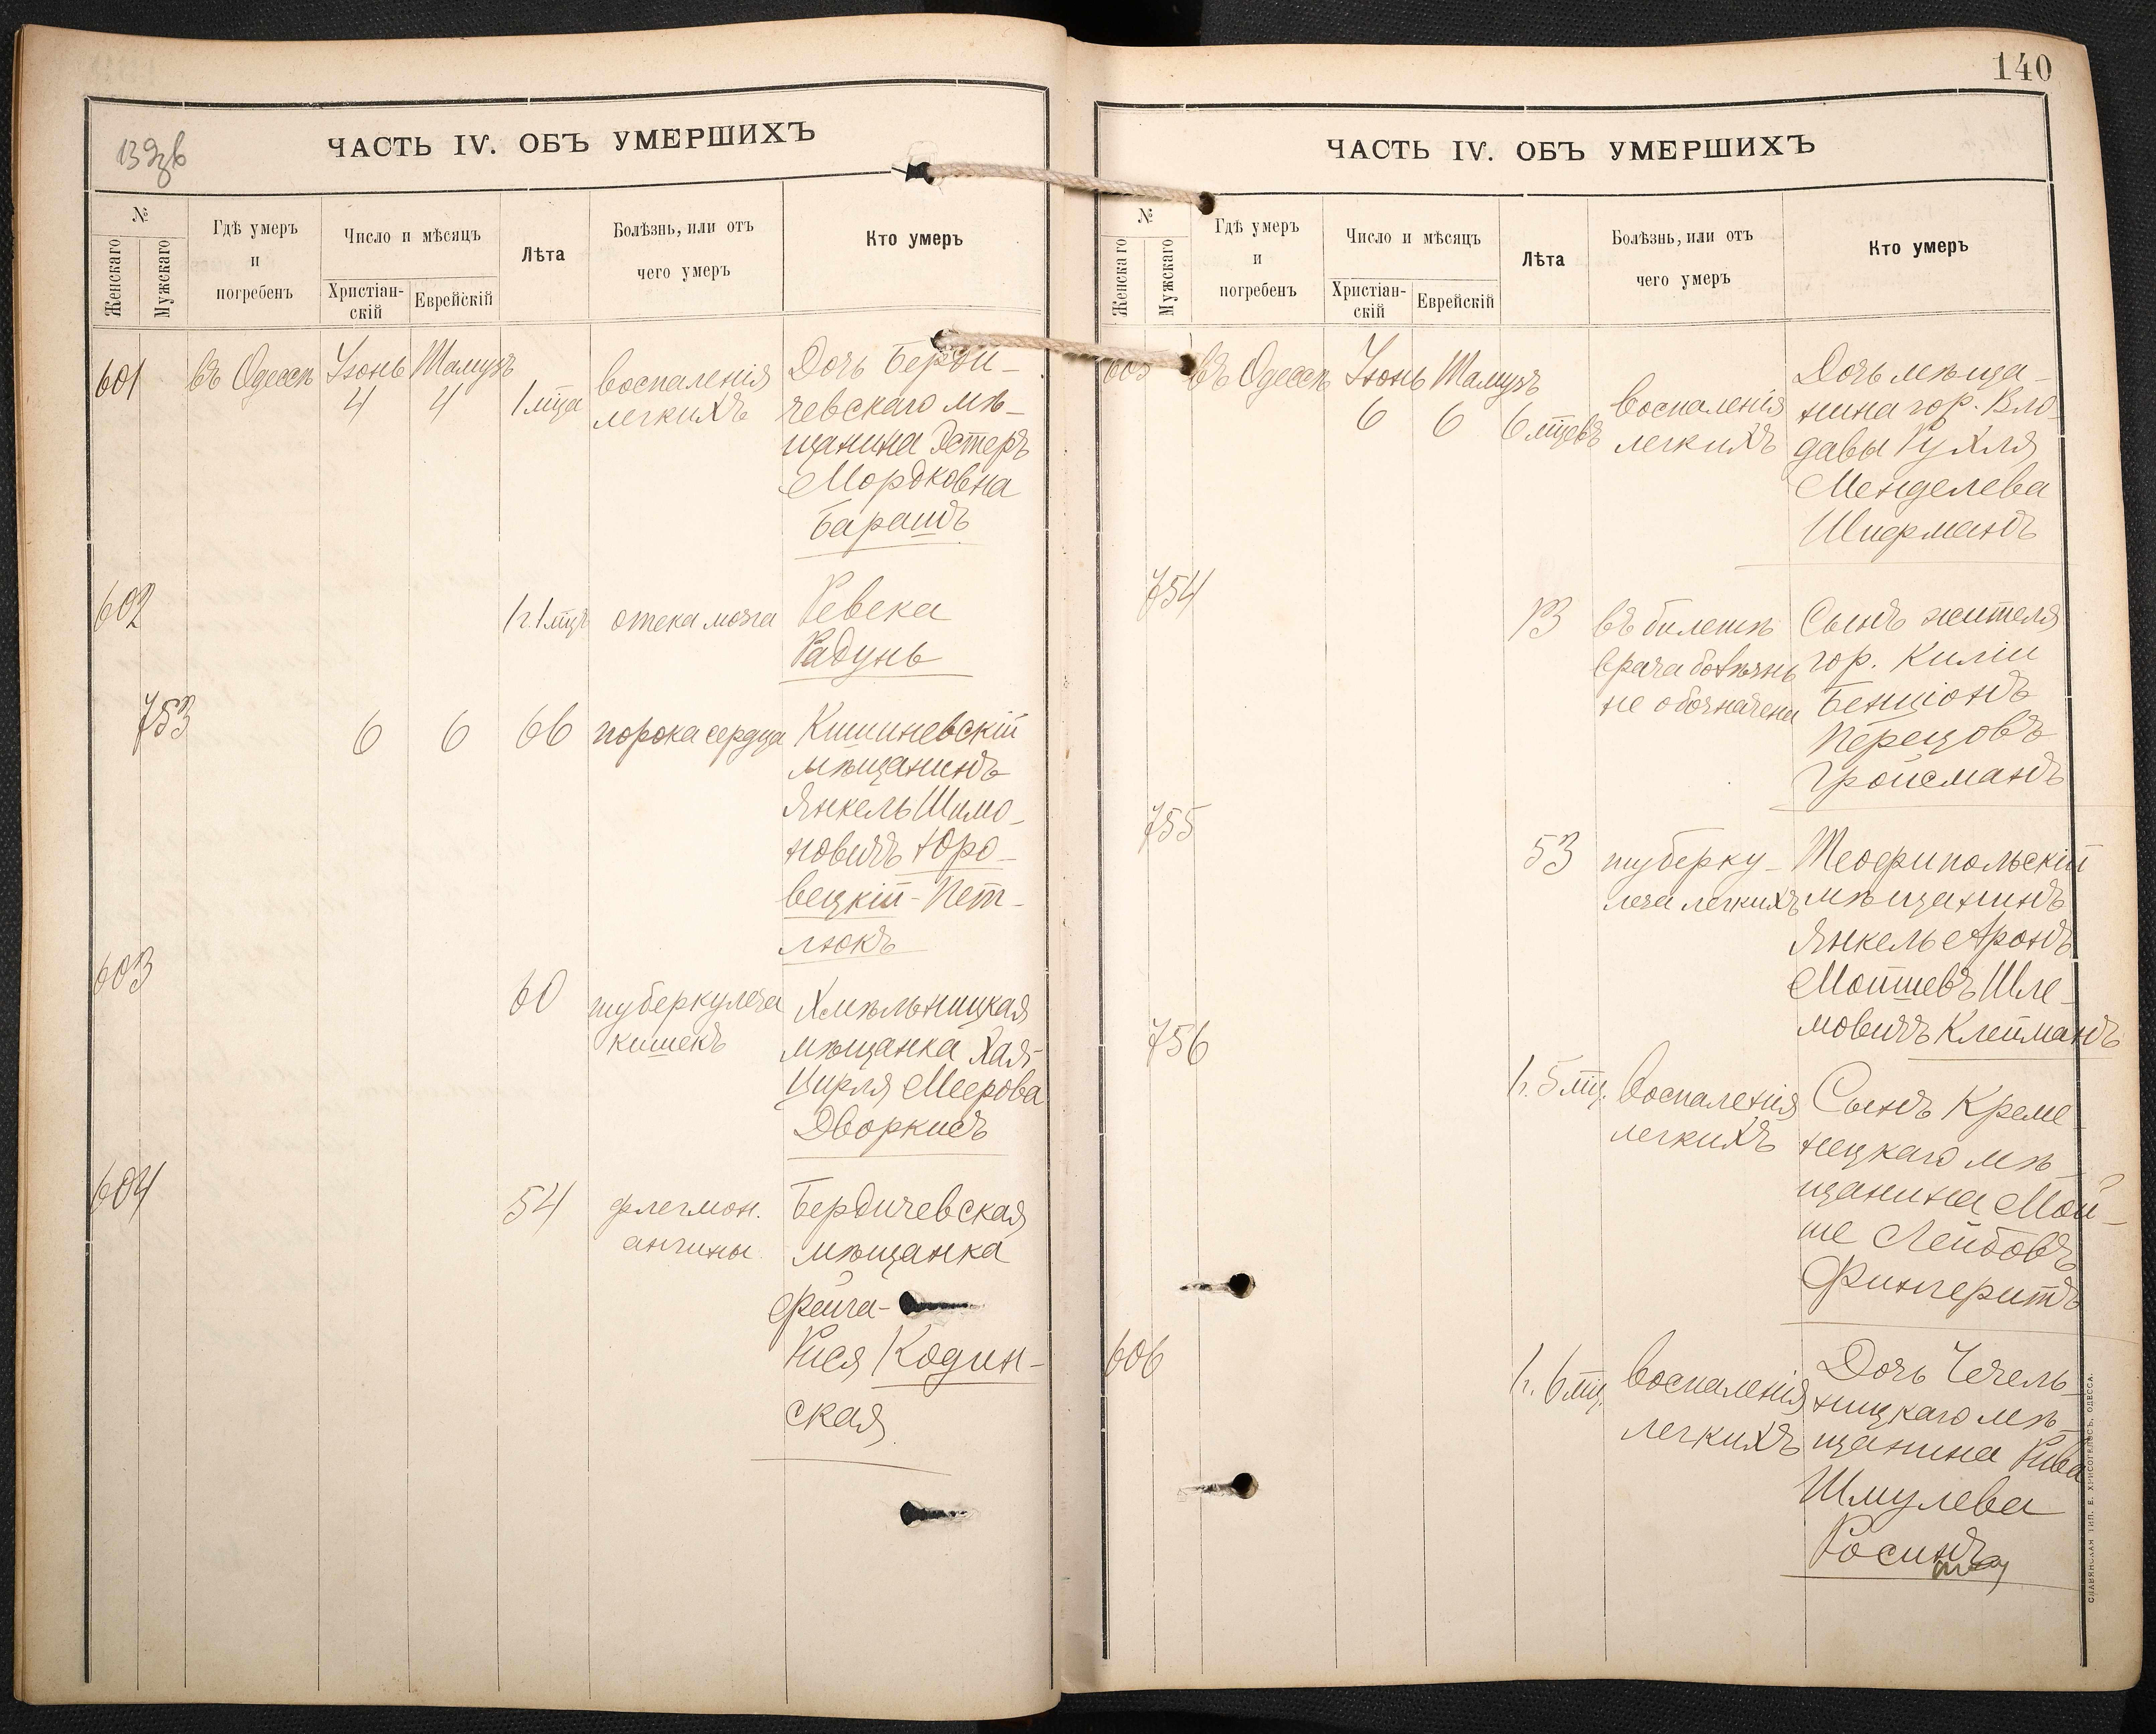 13 экз
ЧАСТЬ IV. ОБЪ УМЕРШИХЪ
№
Женскаго
Мужскаго
Гдѣ умеръ
и
погребенъ
Число и мѣсяцъ
Христіан-
скій
Еврейскій
Лѣта
Болѣзнь, или отъ
чего умеръ
Кто умеръ
601 въ Одессѣ Іюнь Тамузъ
4 4 1 мца
воспаленія
легкихъ
Дочь Берди-
чевскаго мѣ-
щанина Эстеръ
Мордковна
Барашъ
602 1 г. 1 мцъ отека мозга Ревека
Радунь
753 6 6 66 порока сердца Кишиневскій
мѣщанинъ
Янкель Шимо-
новичъ Юро-
вецкій-Пет-
люкъ
603 60 туберкулеза
кишекъ
Хмѣльницкая
мѣщанка Хая-
Цирля Меерова
Дворкисъ
604 54 флегмон.
ангины
Бердичевская
мѣщанка
Фейга-
Рися Кодин-
ская
140
ЧАСТЬ IV. ОБЪ УМЕРШИХЪ
№
Женскаго
Мужскаго
Гдѣ умеръ
и
погребенъ
Число и мѣсяцъ
Христіан-
скій
Еврейскій
Лѣта
Болѣзнь, или отъ
чего умеръ
Кто умеръ
605 въ Одессѣ Іюнь Тамузъ
6 6 6 мцевъ
воспаленія
легкихъ
Дочь мѣща-
нина гор. Вло-
давы Рухля
Менделева
Шифманъ
754 13 въ билетѣ
врача болѣзнь
не обозначена
Сынъ жителя
гор. Киліи
Бенціонъ
Перецовъ
Гройсманъ
755 53 туберку-
леза легкихъ
Теофипольскій
мѣщанинъ
Янкель Аронъ
Мойшевъ Шле-
мовичъ Клейманъ
756 1 г. 5 мц. воспаленія
легкихъ
Сынъ Креме-
нецкаго мѣ-
щанина Мой-
ше Лейбовъ
Фингеритъ
606 1 г. 6 мц. воспаленія
легкихъ
Дочь Чечель-
ницкаго мѣ-
щанина Рива
Шмулева
СЛАВЯНСКАЯ ТИП. Е. ХРИСОГЕЛОСЪ, ОДЕССА.